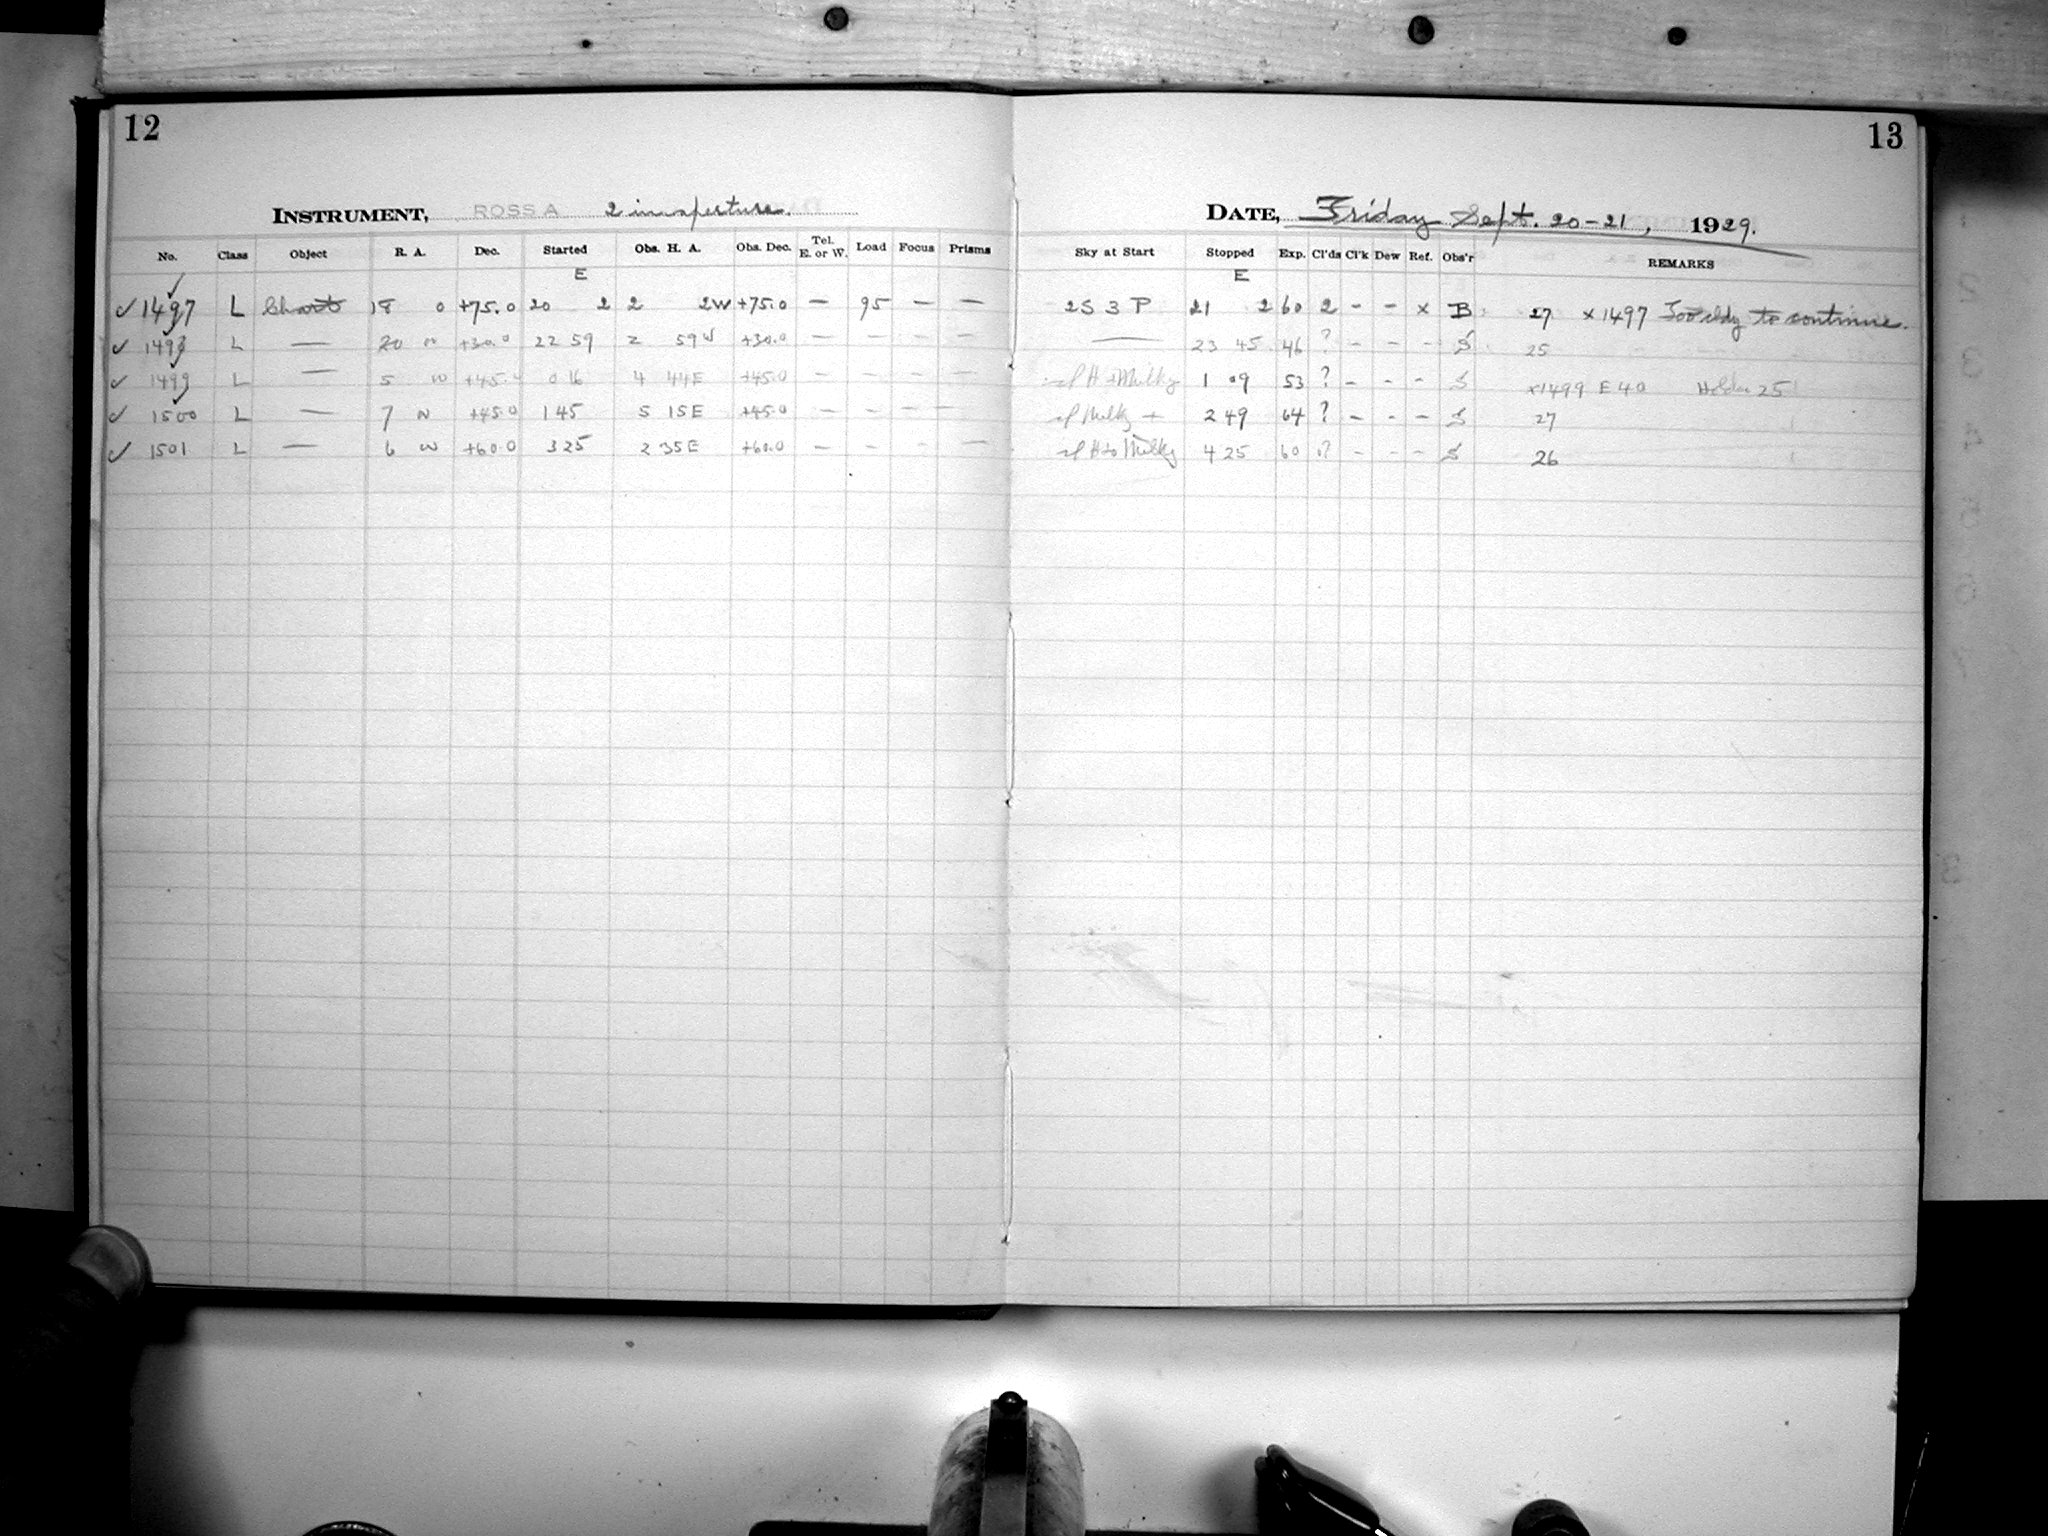 12
INSTRUMENT, ROSS A 2 in aperture.
No. Class Object R. A. Dec. Started Obs. H. A. Obs. Dec. Tel. E. or W. Load Focus Prisms
E
✓ 1497 L Chart 18 0 +75.0 20 2 2 2W +75.0 — 95 — —
✓ 1498 L — 20 +30.0 22 59 2 59W +30.0 — — — —
✓ 1499 L — 5 +45.0 0 16 4 44E +45.0 — — — —
✓ 1500 L — 7 +45.0 1 45 5 15E +45.0 — — — —
✓ 1501 L — 6 +60.0 3 25 2 35E +60.0 — — - —
13
DATE, Friday Sept. 20-21, 1929.
Sky at Start Stopped Exp. Cl'ds Cl'k Dew Ref. Obs'r REMARKS
E
2S 3 P 21 2 60 2 - - x B 27 x1497 Too cldy to continue.
— 23 45 46 ? - - - S 25
Milky 1 09 53 ? - - - S x1499 E40 Holder 25
Milky + 2 49 64 ? - - - S 27
Milky 4 25 60 ? - - - S 26